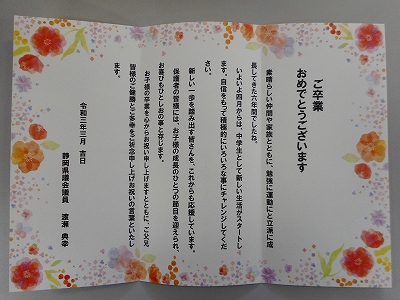 ご卒業
おめでとうございます
素晴らしい仲間や家族とともに、勉強に運動にと立派に成
長してきた六年間でしたね。
いよいよ四月からは、中学生として新しい生活がスタートし
ます。自信をもって積極的にいろいろな事にチャレンジしてくだ
さい。
新しい一歩を踏み出す皆さんを、これからも応援しています。
保護者の皆様には、お子様の成長のひとつの節目を迎えられ、
お喜びもひとしおの事と存じます。
お子様の卒業を心からお祝い申し上げますとともに、ご父兄
皆様のご健勝とご多幸をご祈念申し上げお祝いの言葉といたし
ます。
令和三年三月 吉日
静岡県議会議員 濱瀬 典幸